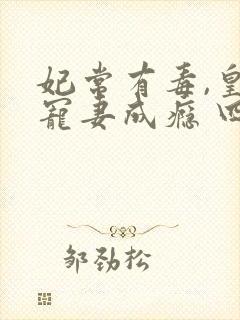 妃常有毒,皇
宠妻成瘾
邹劲松